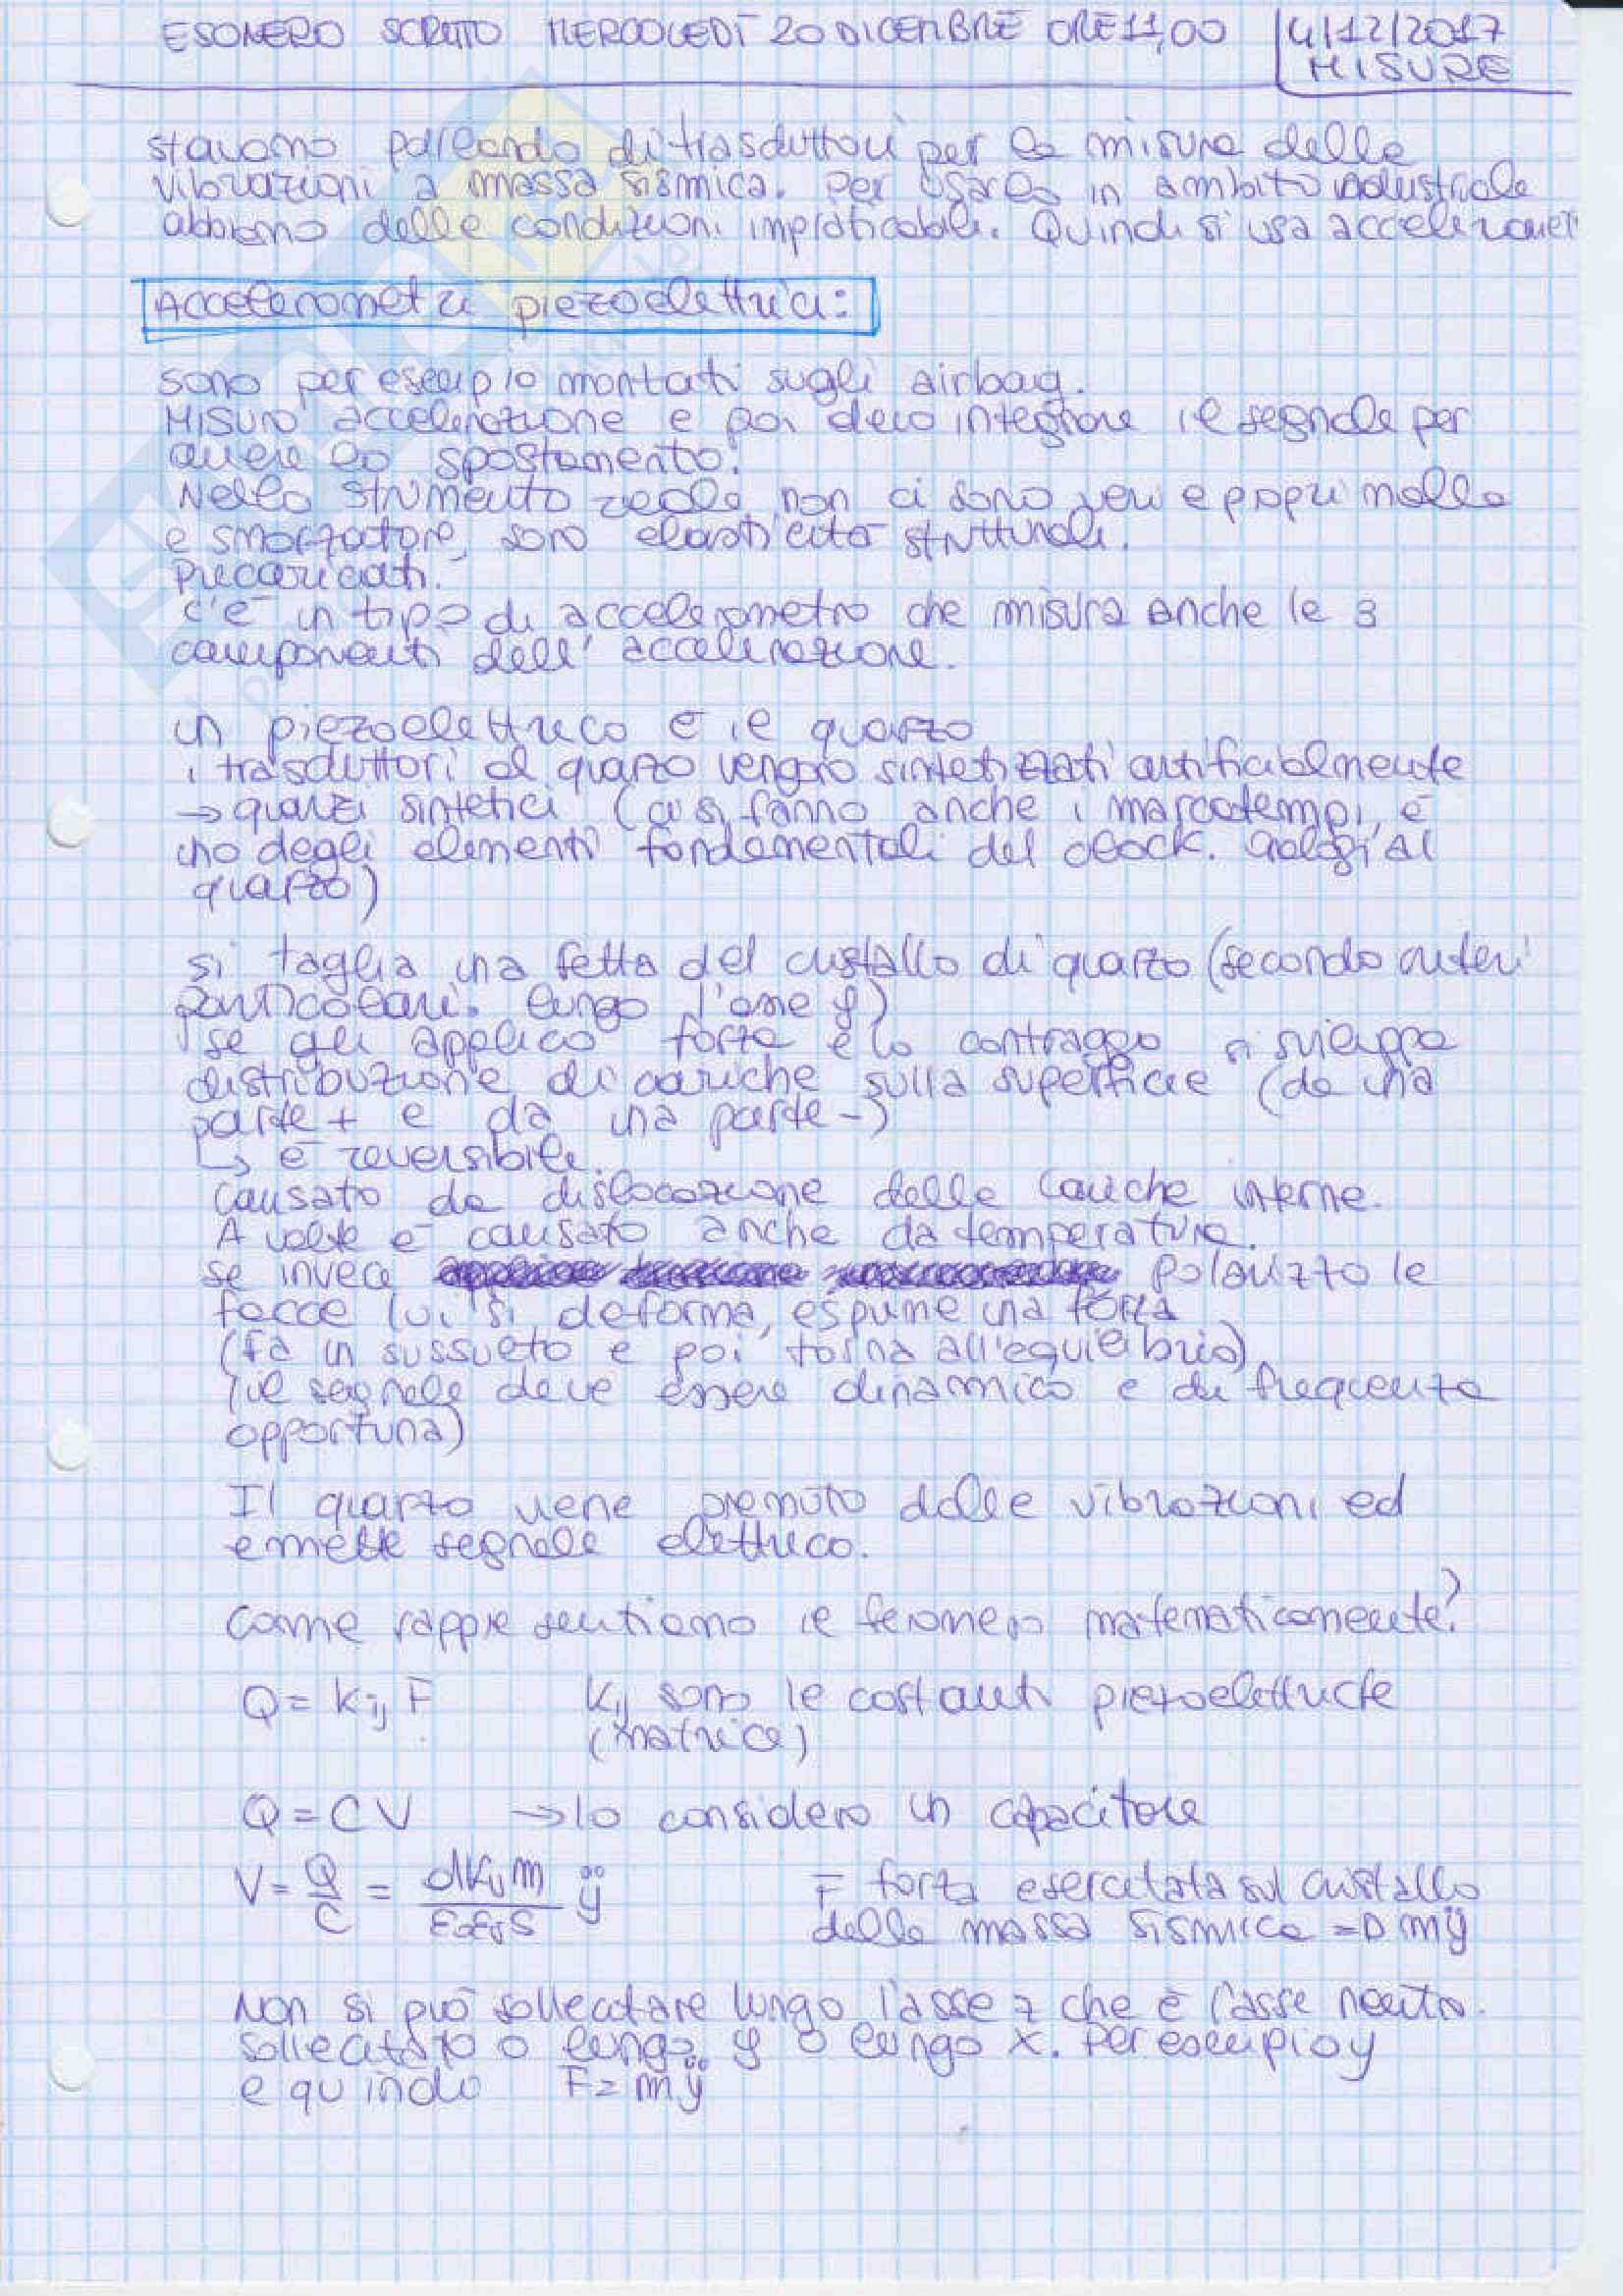 ESONERO SCRITTO MERCOLEDÌ 20 DICEMBRE ORE 11,00
4/12/2017
MISURE
stavamo parlando di trasduttori per la misura delle
vibrazioni a massa sismica. Per usarlo in ambito industriale
abbiamo delle condizioni impraticabili. Quindi si usa acceleromet
Accelerometri piezoelettrici:
sono per esempio montati sugli airbag.
Misuro accelerazione e poi devo integrare il segnale per
avere lo spostamento.
Nello strumento reale non ci sono veri e propri molla
e smorzatore, sono elasticità strutturali.
Precaricati.
c'è un tipo di accelerometro che misura anche le 3
componenti dell'accelerazione.
un piezoelettrico è il quarzo
i trasduttori al quarzo vengono sintetizzati artificialmente
→ quarzi sintetici (ci si fanno anche i marcatempi, è
uno degli elementi fondamentali del clock. Orologi al
quarzo)
si taglia una fetta del cristallo di quarzo (secondo criteri
particolari. lungo l'asse y)
se gli applico forza e lo contraggo si sviluppa
distribuzione di cariche sulla superficie (da una
parte + e da una parte -)
↳ è reversibile.
causato da dislocazione delle cariche interne.
A volte è causato anche da temperatura.
se invece polarizzo le
facce lui si deforma, esprime una forza
(fa un sussulto e poi torna all'equilibrio)
(il segnale deve essere dinamico e di frequenza
opportuna)
Il quarzo viene premuto dalle vibrazioni ed
emette segnale elettrico.
Come rappresentiamo il fenomeno matematicamente?
Q = Kij F Kij sono le costanti piezoelettriche
(matrice)
Q = CV → lo considero un capacitore
V = Q/C = dKijm/ε0εrS ÿ F forza esercitata sul cristallo
dalla massa sismica => mÿ
Non si può sollecitare lungo l'asse z che è l'asse neutro.
sollecitato o lungo y o lungo x. Per esempio y
e quindi F = mÿ